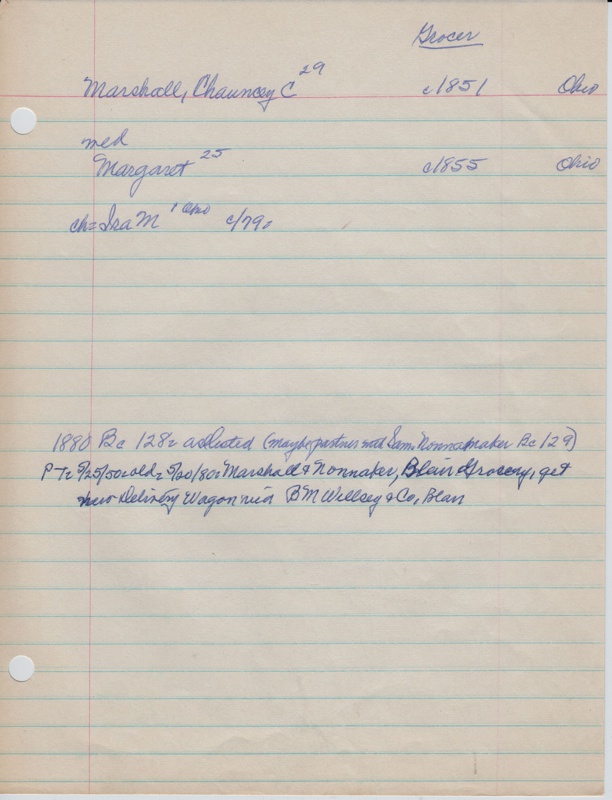 Grocer
Marshall, Chauncey C 29 c1851 Ohio
med
Margaret 25 c1855 Ohio
ch= Isa M 1 Ohio c/79=
1880 Bc 128= as listed (maybe partner med Sam Nonnamaker Bc 129)
PT= 5/25/50= old= 5/20/80= Marshall & Nonnaker, Blair Grocery, get
new Delivery Wagon via BM Willsey & Co, Blair